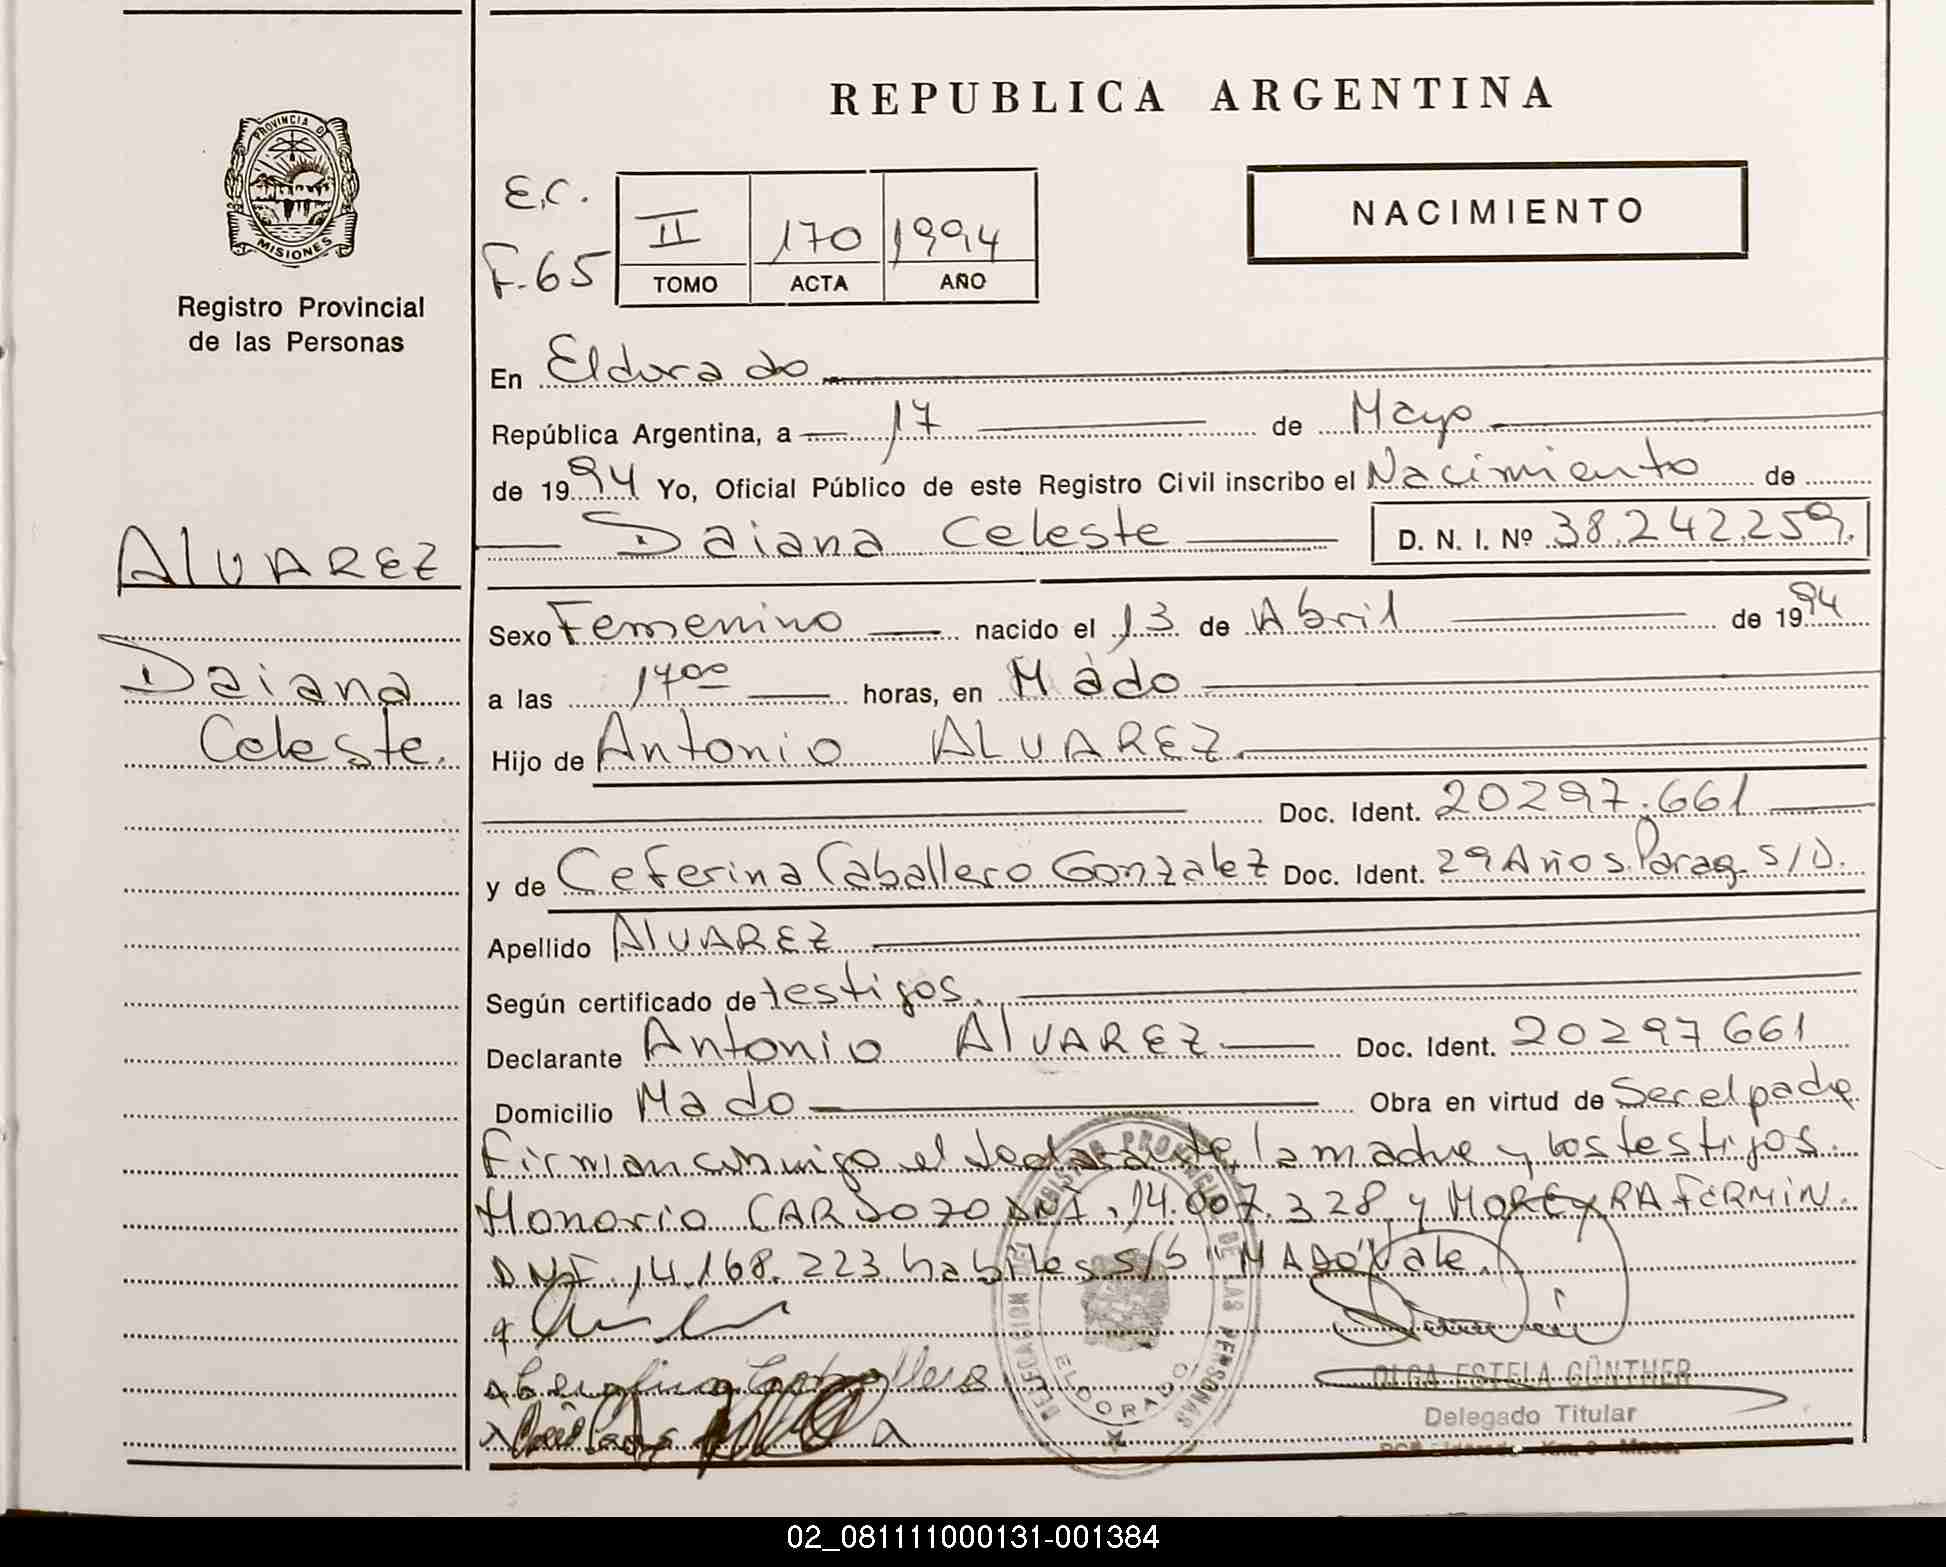 REPUBLICA ARGENTINA
PROVINCIA D
MISIONES
Registro Provincial
de las Personas
E.C.
F-65
II 170 1994
TOMO ACTA AÑO
NACIMIENTO
En Eldorado
República Argentina, a 17 de Mayo
de 1994 Yo, Oficial Público de este Registro Civil inscribo el Nacimiento de
Daiana Celeste D. N. I. Nº 38.242.259.
ALVAREZ
Daiana
Celeste.
Sexo Femenino nacido el 13 de Abril de 1994
a las 17 00 horas, en Mado
Hijo de Antonio ALVAREZ
Doc. Ident. 20297.661
y de Ceferina Caballero Gonzalez Doc. Ident. 29 Años. Parag. S/D.
Apellido ALVAREZ
Según certificado de testigos.
Declarante Antonio ALVAREZ Doc. Ident. 20297661
Domicilio Mado Obra en virtud de Ser el padre
Firman conmigo el declarante, la madre y los testigos.
Honorio CARDOZO DNI. 14.007.328 y MOREYRA FERMIN.
DNI. 14.168.223. habiles s/b "MADO" Vale.
DELEGACION REGISTRO PROVINCIAL DE LAS PERSONAS
ELDORADO
OLGA ESTELA GÜNTHER
Delegado Titular
02_081111000131-001384